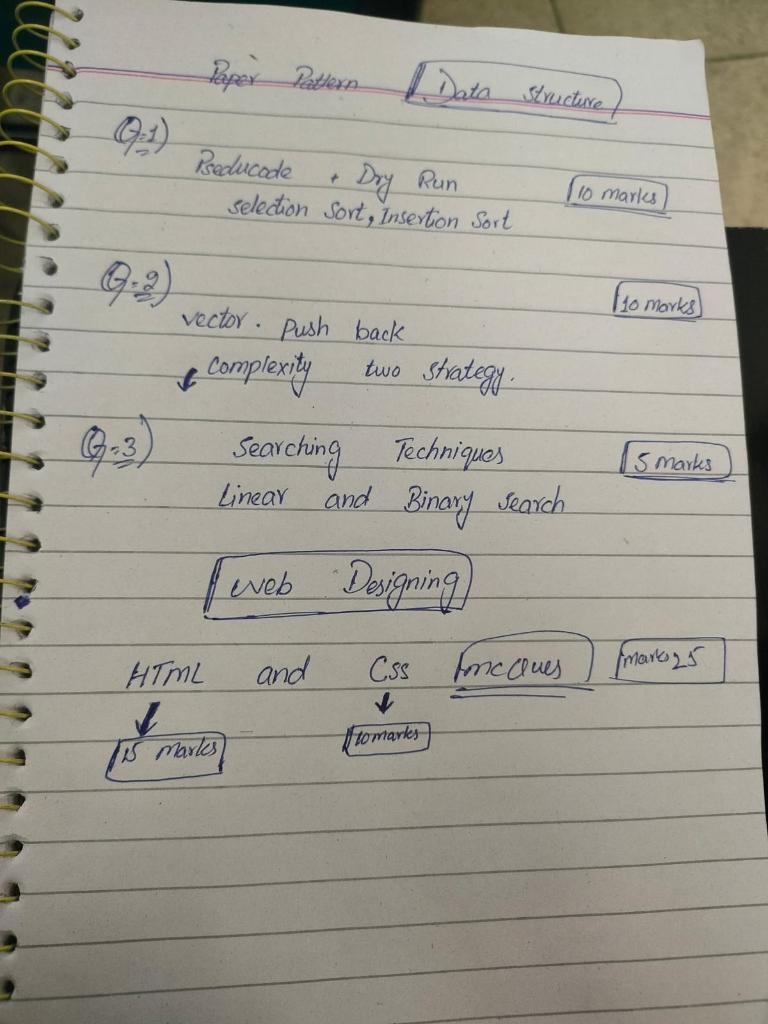 Paper Pattern Data structure
Q=1)
Pseducode + Dry Run 10 marks
selection Sort, Insertion Sort
Q=2) 10 marks
vector. Push back
Complexity two strategy.
Q=3) Searching Techniques 5 marks
Linear and Binary search
Web Designing
HTML and Css mcques marks 25
15 marks 10 marks